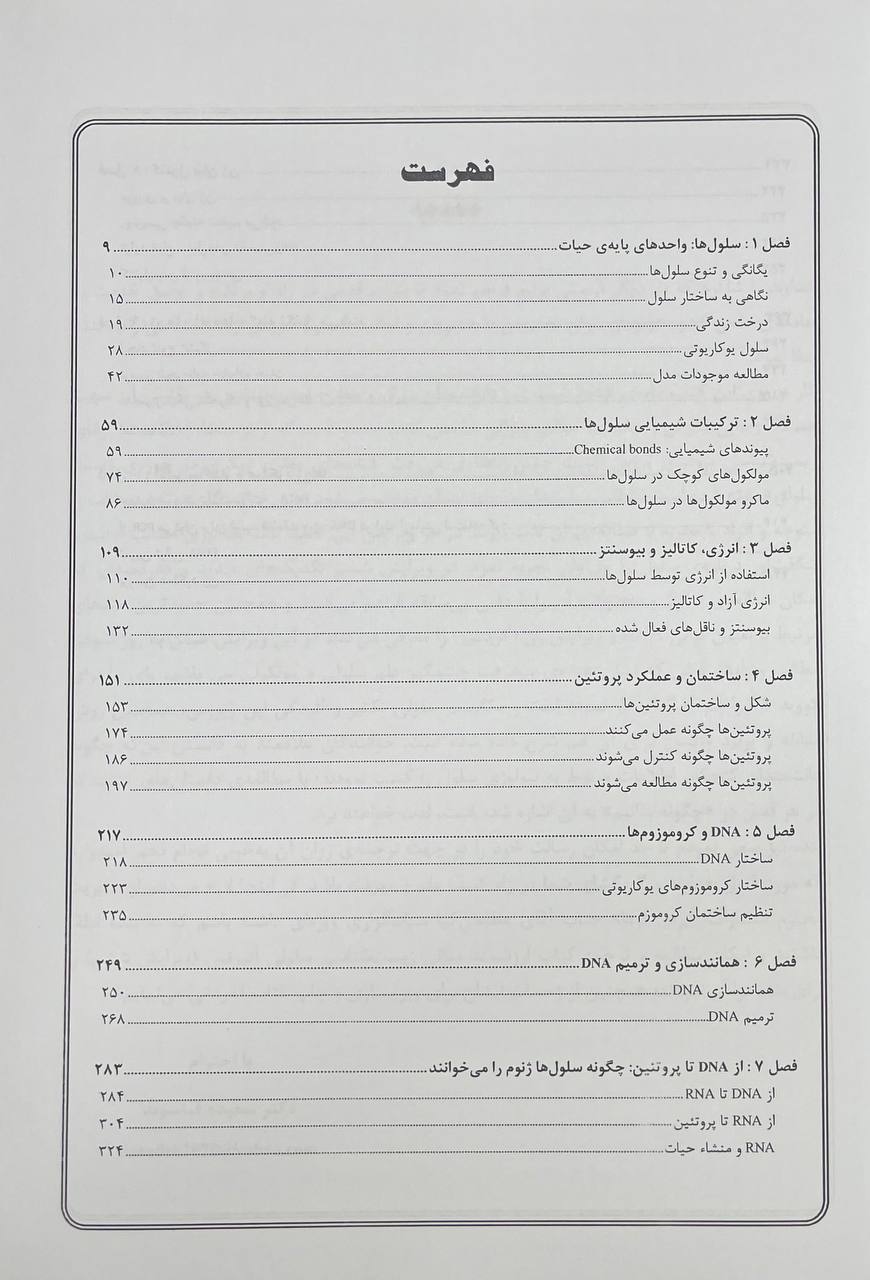 فهرست
فصل ۱ : سلول‌ها: واحدهای پایه‌ی حیات ........ ۹
یگانگی و تنوع سلول‌ها ........ ۱۰
نگاهی به ساختار سلول ........ ۱۵
درخت زندگی ........ ۱۹
سلول یوکاریوتی ........ ۲۸
مطالعه موجودات مدل ........ ۴۲
فصل ۲ : ترکیبات شیمیایی سلول‌ها ........ ۵۹
پیوندهای شیمیایی: Chemical bonds ........ ۵۹
مولکول‌های کوچک در سلول‌ها ........ ۷۴
ماکرو مولکول‌ها در سلول‌ها ........ ۸۶
فصل ۳ : انرژی، کاتالیز و بیوسنتز ........ ۱۰۹
استفاده از انرژی توسط سلول‌ها ........ ۱۱۰
انرژی آزاد و کاتالیز ........ ۱۱۸
بیوسنتز و ناقل‌های فعال شده ........ ۱۳۲
فصل ۴ : ساختمان و عملکرد پروتئین ........ ۱۵۱
شکل و ساختمان پروتئین‌ها ........ ۱۵۳
پروتئین‌ها چگونه عمل می‌کنند ........ ۱۷۴
پروتئین‌ها چگونه کنترل می‌شوند ........ ۱۸۶
پروتئین‌ها چگونه مطالعه می‌شوند ........ ۱۹۷
فصل ۵ : DNA و کروموزوم‌ها ........ ۲۱۷
ساختار DNA ........ ۲۱۸
ساختار کروموزوم‌های یوکاریوتی ........ ۲۲۳
تنظیم ساختمان کروموزم ........ ۲۳۵
فصل ۶ : همانندسازی و ترمیم DNA ........ ۲۴۹
همانندسازی DNA ........ ۲۵۰
ترمیم DNA ........ ۲۶۸
فصل ۷ : از DNA تا پروتئین: چگونه سلول‌ها ژنوم را می‌خوانند ........ ۲۸۳
از DNA تا RNA ........ ۲۸۴
از RNA تا پروتئین ........ ۳۰۴
RNA و منشاء حیات ........ ۳۲۴